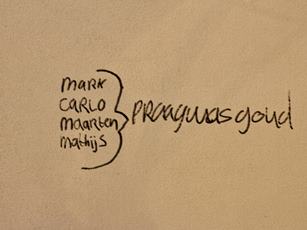 mark
CARLO
maarten
mathijs
PRaagwasgoud